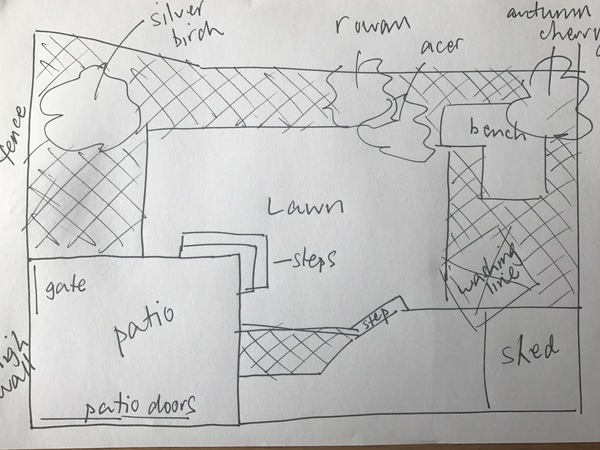 silver
birch
rowan
acer
autumn
cherry
fence
bench
Lawn
steps
gate
washing
line
patio
step
high
wall
shed
patio doors